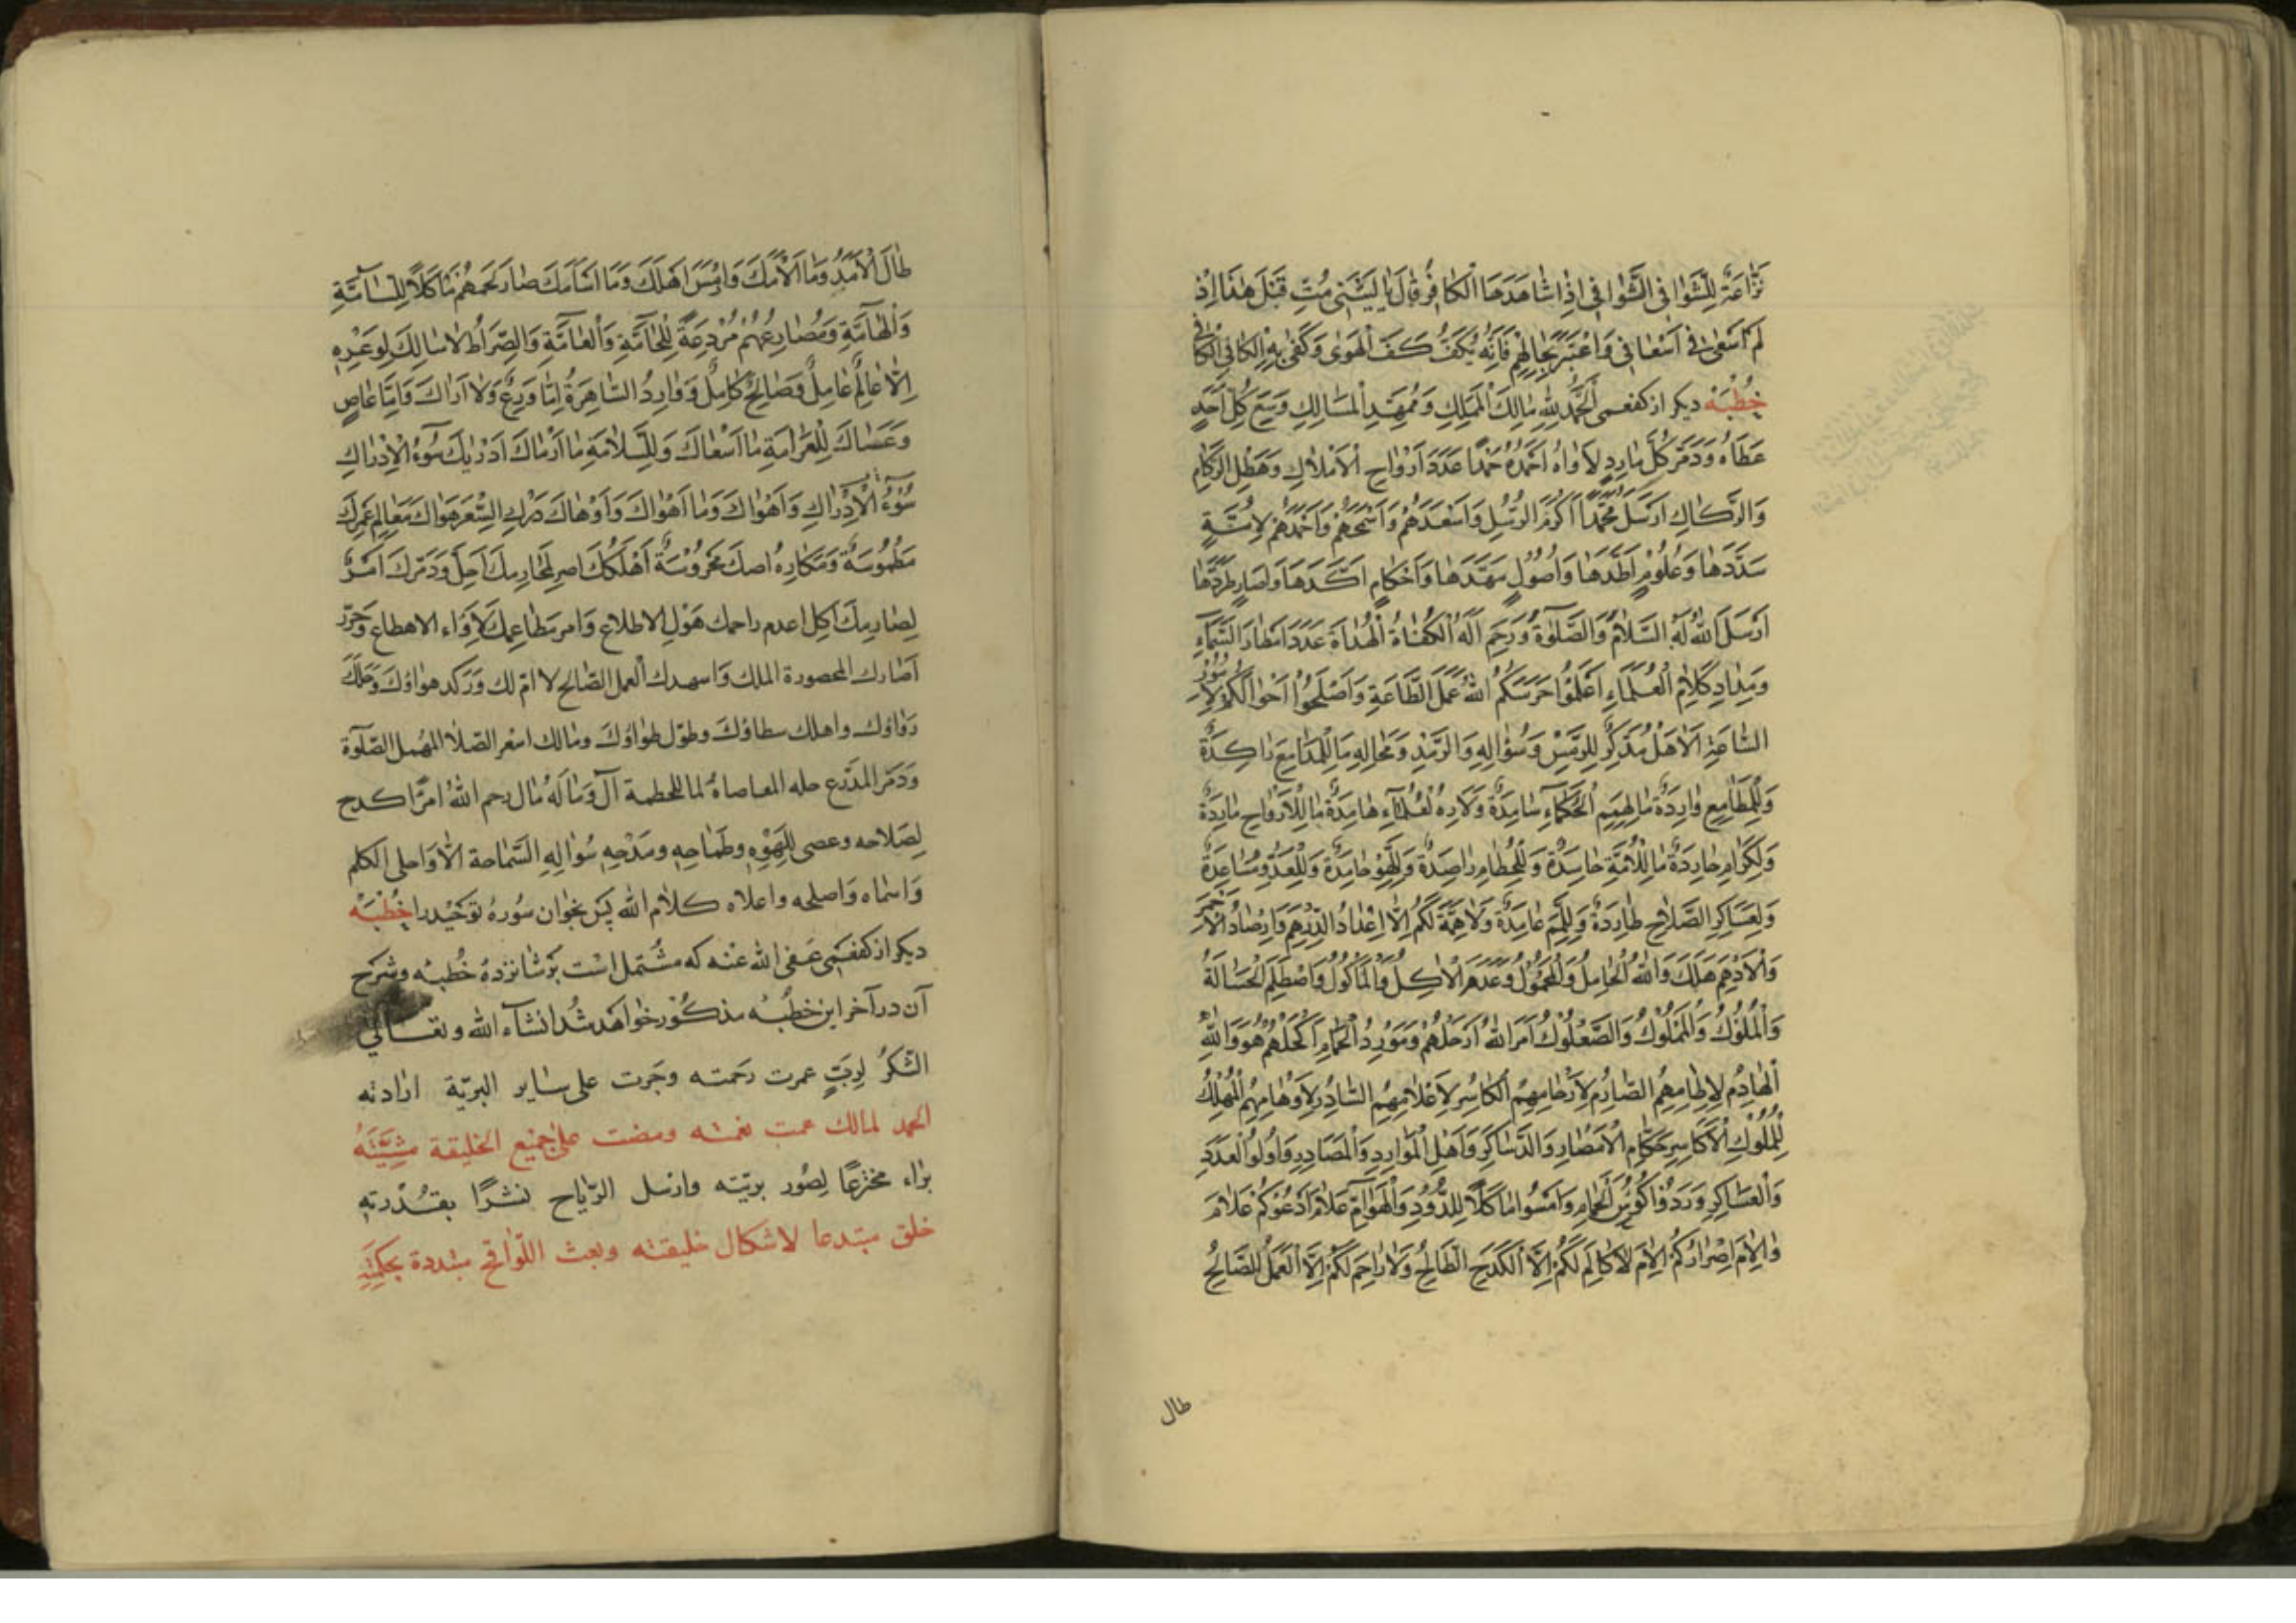 نَزَّاعَةً لِلشَّوٰا فِي الشَّوٰا فِي اِذٰا شٰاهَدَهَا الْكٰافِرُ قٰالَ يٰا لَيْتَنِي مُتُّ قَبْلَ هٰذَا اِذْ
لَمْ اَسْعىٰ فِي اَسْعٰافِي وَاعْتَبِرْ فَاِنَّهُ يَكُفُّ كَفَّ الْهَوىٰ وَكَفىٰ بِهِ الكافي
خُطْبَهْ ديكر از كفعمى اَلْحَمْدُ لِلّٰهِ مٰالِكَ الْمَمٰالِكِ وَمُمَهِّدِ الْمَسٰالِكِ وَسِعَ كُلَّ اَحَدٍ
عَطٰاهُ وَدَمَّرَ كُلَّ مٰارِدٍ لٰاوٰاهُ اَحْمَدُهُ حَمْدًا عَدَدَ اَرْوٰاحِ الْاَمْلٰاكِ وَهَطْلِ الرُّكٰامِ
وَالرَّكٰاكِ اَرْسَلَ مُحَمَّدًا اَكْرَمَ الرُّسُلِ وَاَسْعَدَهُمْ وَاَسْمَحَهُمْ وَاَحْمَدَهُمْ لِاُمَّةٍ
سَدَّدَهٰا وَعُلُومٍ اَطَّدَهٰا وَاُصُولٍ مَهَّدَهٰا وَاَحْكٰامٍ اَكَّدَهَا وَاِصٰارٍ طَرَدَهٰا
اَرْسَلَ اللّٰهُ لَهُ السَّلٰامَ وَالصَّلٰوةَ وَرَحِمَ اٰلَهُ الْكُفٰاةُ الْهُدٰاةَ عَدَدَ اَمْطٰارِ السَّمٰآءِ
وَمِدٰادِ كَلٰامِ الْعُلَمٰاءِ اعْلَمُوا حَرَسَكُمُ اللّٰهُ عَمَلَ الطَّاعَةِ وَاَصْلِحُوا اَحْوٰالَكُمْ
السَّاعَةِ اَلٰا هَلْ مُدَّكِرٌ لِلرَّمْسِ وَسُؤٰالِهِ وَالرَّمْدِ وَمَحٰالِهِ مَا لِلْمَدٰامِعِ رٰاكِدَةٌ
وَلِلْمَطٰامِعِ وٰارِدَةٌ مٰا لِهِمَمِ الْحُكَمٰآءِ سٰامِدَةٌ هٰامِدَةٌ مٰا لِلْاَرْوٰاحِ مٰارِدَةٌ
وَلِكِرٰامِ حٰارِدَةٌ مٰا لِلْاُمَّةِ حٰاسِدَةٌ وَلِلْحُطٰامِ رٰاصِدَةٌ وَلِلَّهْوِ حٰامِدَةٌ وَلِلْعَدُوِّ مُسٰاعِدَةٌ
وَلِعَسٰاكِرِ الصَّلٰاحِ طٰارِدَةٌ وَلِلَّمَمِ عٰامِدَةٌ وَلٰا هِمَّةَ لَكُمْ اِلَّا اِعْدٰادُ الدِّرْهَمِ وَاِرْصٰادُ الْاَحْمَرِ
وَالْاَدْهَمِ هَلَكَ وَاللّٰهُ الْحٰامِلُ وَالْمَحْمُولُ وَعُدِمَ الْاٰكِلُ وَالْمَأْكُولُ وَاصْطُلِمَ الْحُسٰالَةُ
وَالْمُلُوكُ وَالْمَمْلُوكُ وَالصُّعْلُوكُ اَمْرُ اللّٰهِ اَرْحَلَهُمْ وَمَوْرِدُ الْحِمٰامِ اَكْحَلَهُمْ هُوَ وَاللّٰهِ
الْهٰادِمُ لِاٰطٰامِهِمُ الصّٰارِمُ لِاَرْحٰامِهِمُ الْكٰاسِرُ لِاَعْلٰامِهِمُ السّٰادِرُ لِاَوْهٰامِهِمُ الْمُهْلِكُ
لِلْمُلُوكِ الْاَكٰاسِرِ حُكّٰامِ الْاَمْصٰارِ وَالدَّسٰاكِرِ وَاَهْلِ الْمَوٰارِدِ وَالْمَصٰادِرِ وَاُولُوا الْعَدَدِ
وَالْعَسٰاكِرِ وَرَدُوا كُؤُسَ الْحِمٰامِ وَاَمْسُوا مَأْكَلًا لِلدُّودِ وَالْهَوٰامِّ عَلٰامَ اَدْعُوكُمْ عَلٰامَ
وَاِلٰامَ اِصْرٰارُكُمْ اِلٰامَ لٰا كٰالِمَ لَكُمْ اِلَّا الْكَدْحُ الطّٰالِحُ وَلٰا رٰاحِمَ لَكُمْ اِلَّا الْعَمَلُ الصّٰالِحُ
طال
طٰالَ الْاَمَدُ وَمٰا اَلْاَمَكَ وَاَهْلَكَ وَمٰا اَسْاَمَكَ صٰارَ لَحْمُهُمْ مَأْكَلًا لِلسّٰآمَّةِ
وَالْهٰآمَّةِ وَمَصٰارِعُهُمْ مُزْدَرَعَةً لِلْحٰآمَّةِ وَالْعٰآمَّةِ وَالصِّرٰاطُ لٰا سٰالِكَ لِوَعْرِهِ
اِلَّا عٰالِمٌ عٰامِلٌ وَصٰالِحٌ كٰامِلٌ وَوٰارِدُ السّٰاهِرَةِ اِمّٰا وَرِعٌ وَلٰا اَرٰاكَ وَاِمّٰا عٰاصٍ
وَعَسٰاكَ لِلْغَرٰامَةِ مٰا اَسْعٰاكَ وَلِلسَّلٰامَةِ مٰا اَرْمٰاكَ اَدْرَيٰكَ سُوْءُ الْاِدْرٰاكِ
سُوْءُ الْاِدْرٰاكِ وَاَهْوٰاكَ وَمٰا اَهْوٰاكَ وَاَوْهٰاكَ دَرْكِ السِّعْرِ هَوٰاكَ مَعٰالِمُ عُمْرِكَ
مَطْمُوسَةٌ وَمَكٰارِهُ اصك مَحْرُوسَةٌ اَهْلَكَكَ اصر لِمَحٰارِمِكَ اَحَلَّ وَدَمَّرَكَ اَمْرٌ
لِصٰارِمِكَ اَكَلَّ اعدم راحمك هَوْلَ الاطلاع وَامر مَطٰاعِمِكَ لَأْوٰاء الاهطاع وَحَرَّرَ
اٰصٰارك المحصورة الملك وَاسهدك العمل الصّالح لا امّ لك وَرَكد هواؤك وَحَلَكَ
رواؤك واهلك سطاؤك وطوّل طواؤك ومالك اسعر الصّلا المهمل الصّلٰوة
وَدَمَّر المدّرع حله المعاصاة لما للحطمة اٰل وَمٰا لَهُ مٰال رحم اللّٰهُ امرًا كدح
لِصَلاحه وعصى لِلَهْوِهِ وطِمٰاحِهِ ومَدْحِهِ سُؤٰالِهِ السّماحة الا وَاحلى الكلم
وَاسماه وَاصلحه واعلاه كلام اللّٰه پَس بخوان سُورهٔ توحيد را خُطْبَهْ
ديكر از كفعمى عَفى اللّٰه عَنْه كه مشتمل است بَر شانزده خُطبه وشرح
آن در آخر اين خطبه مذكور خواهد شد انشآء اللّٰه وتعالى
الشّكرُ لِرَبٍّ عمرت رحَمته وجَرت على ساير البريّة ارادته
الحمد لمالك عمت نعمته ومضت على جميع الخليقة مشيّته
براء مخترعًا لِصُور بريّته وارسل الرّياح نشرًا بقدرته
خلق مبتدعا لاشكال خليقته وبعث اللّواقح مبتددة بحكمته